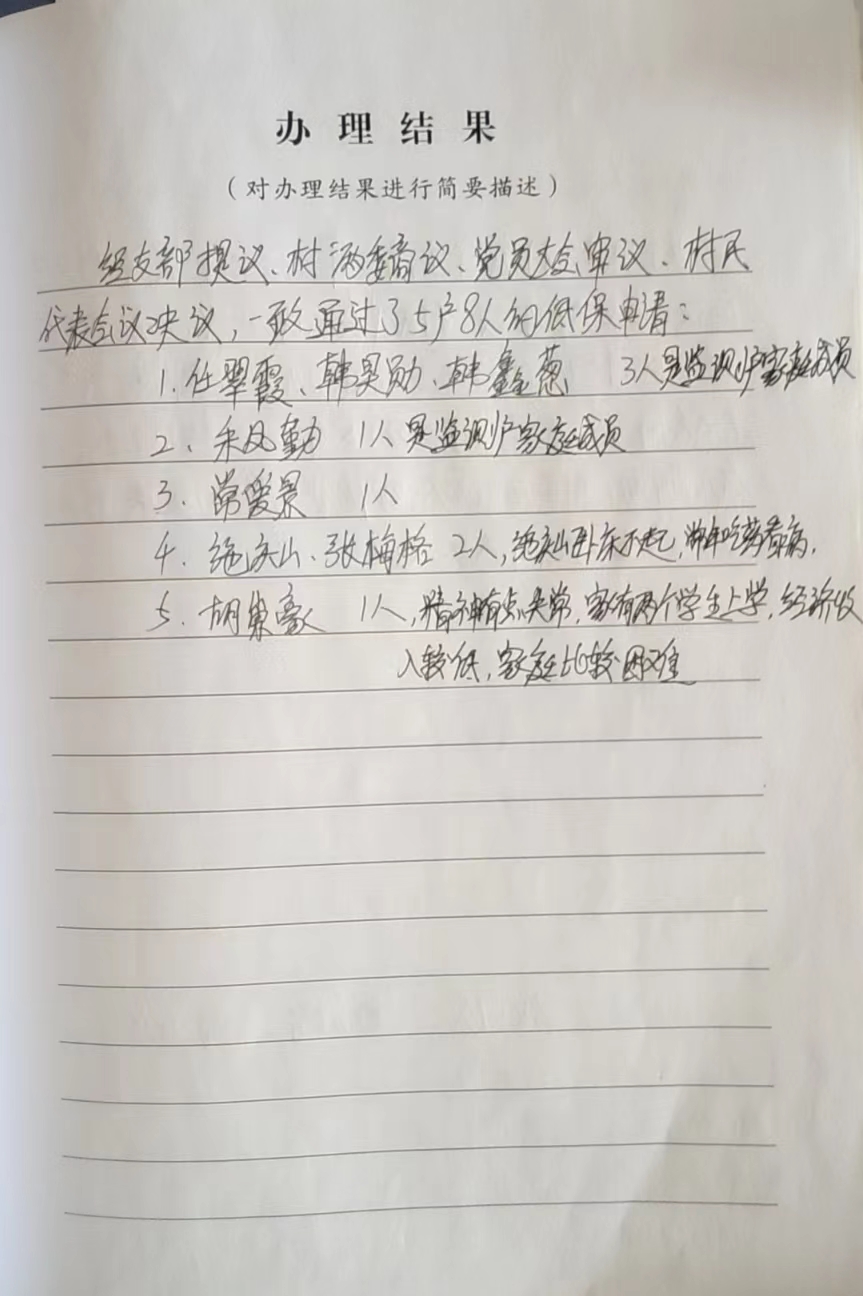 办理结果
（对办理结果进行简要描述）
经支部提议、村两委商议、党员大会审议、村民
代表会议决议，一致通过了5户8人的低保申请：
1、任翠霞、韩昊勋、韩鑫蕊 3人是监测户家庭成员
2、 凤勤 1人是监测户家庭成员
3、常爱景 1人
4、 庆山、张梅格 2人， 庆山卧床不起，常年吃药看病，
5、胡 豪 1人，精神有点失常，家有两个学生上学，经济收
入较低，家庭比较困难